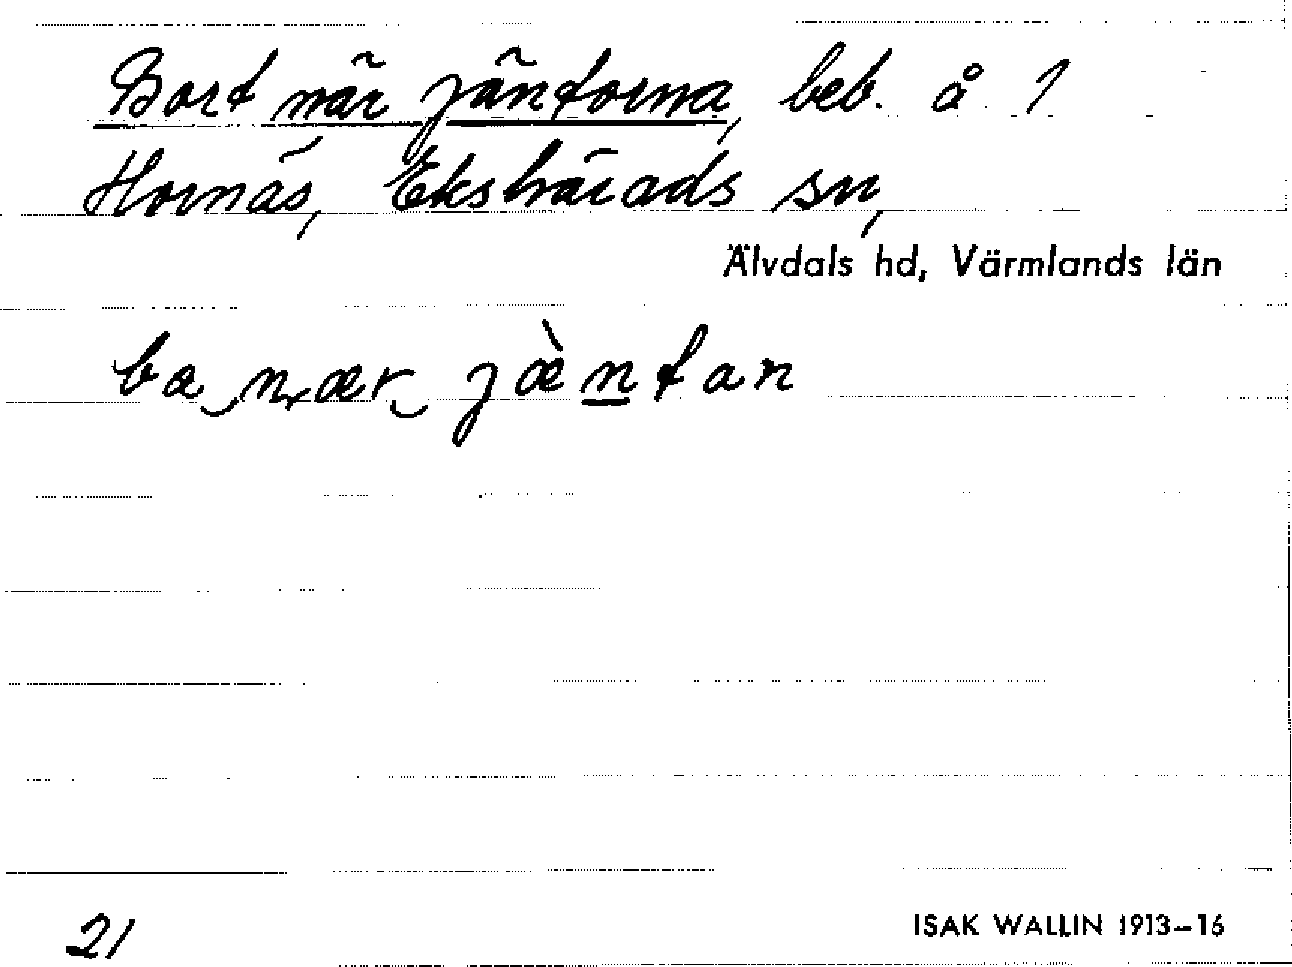 Bort när jäntorna, beb. å 1
Hornäs, Ekshärads sn,
Älvdals hd, Värmlands län
ba nær jæ̀ntan
21
ISAK WALLIN 1913–16